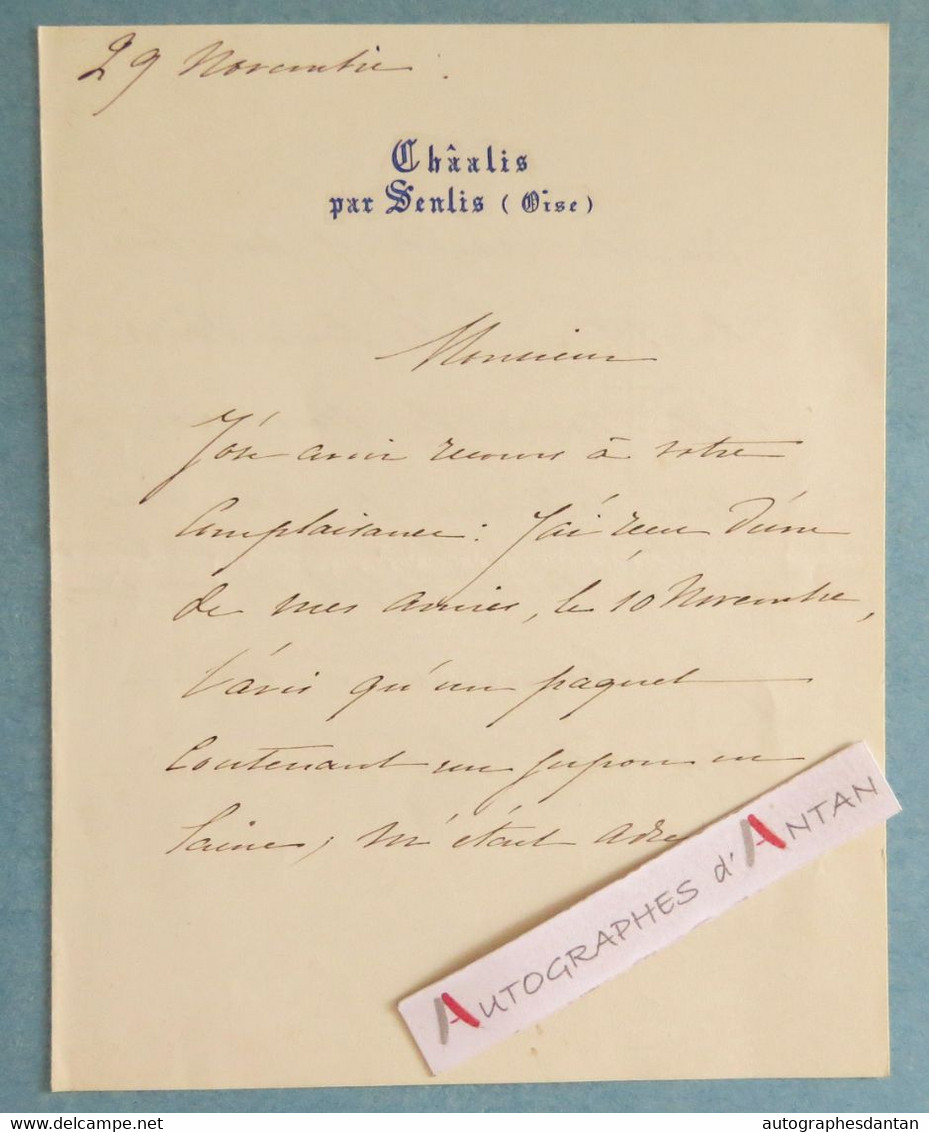 29 Novembre.
Châalis
par Senlis (Oise)
Monsieur
J'ose avoir recours à votre
complaisance: J'ai reçu d'une
de mes amies, le 10 Novembre,
l'avis qu'un paquet
contenant un jupon en
laine, m'était adre
AUTOGRAPHES d'ANTAN
www.delcampe.net
autographesdantan